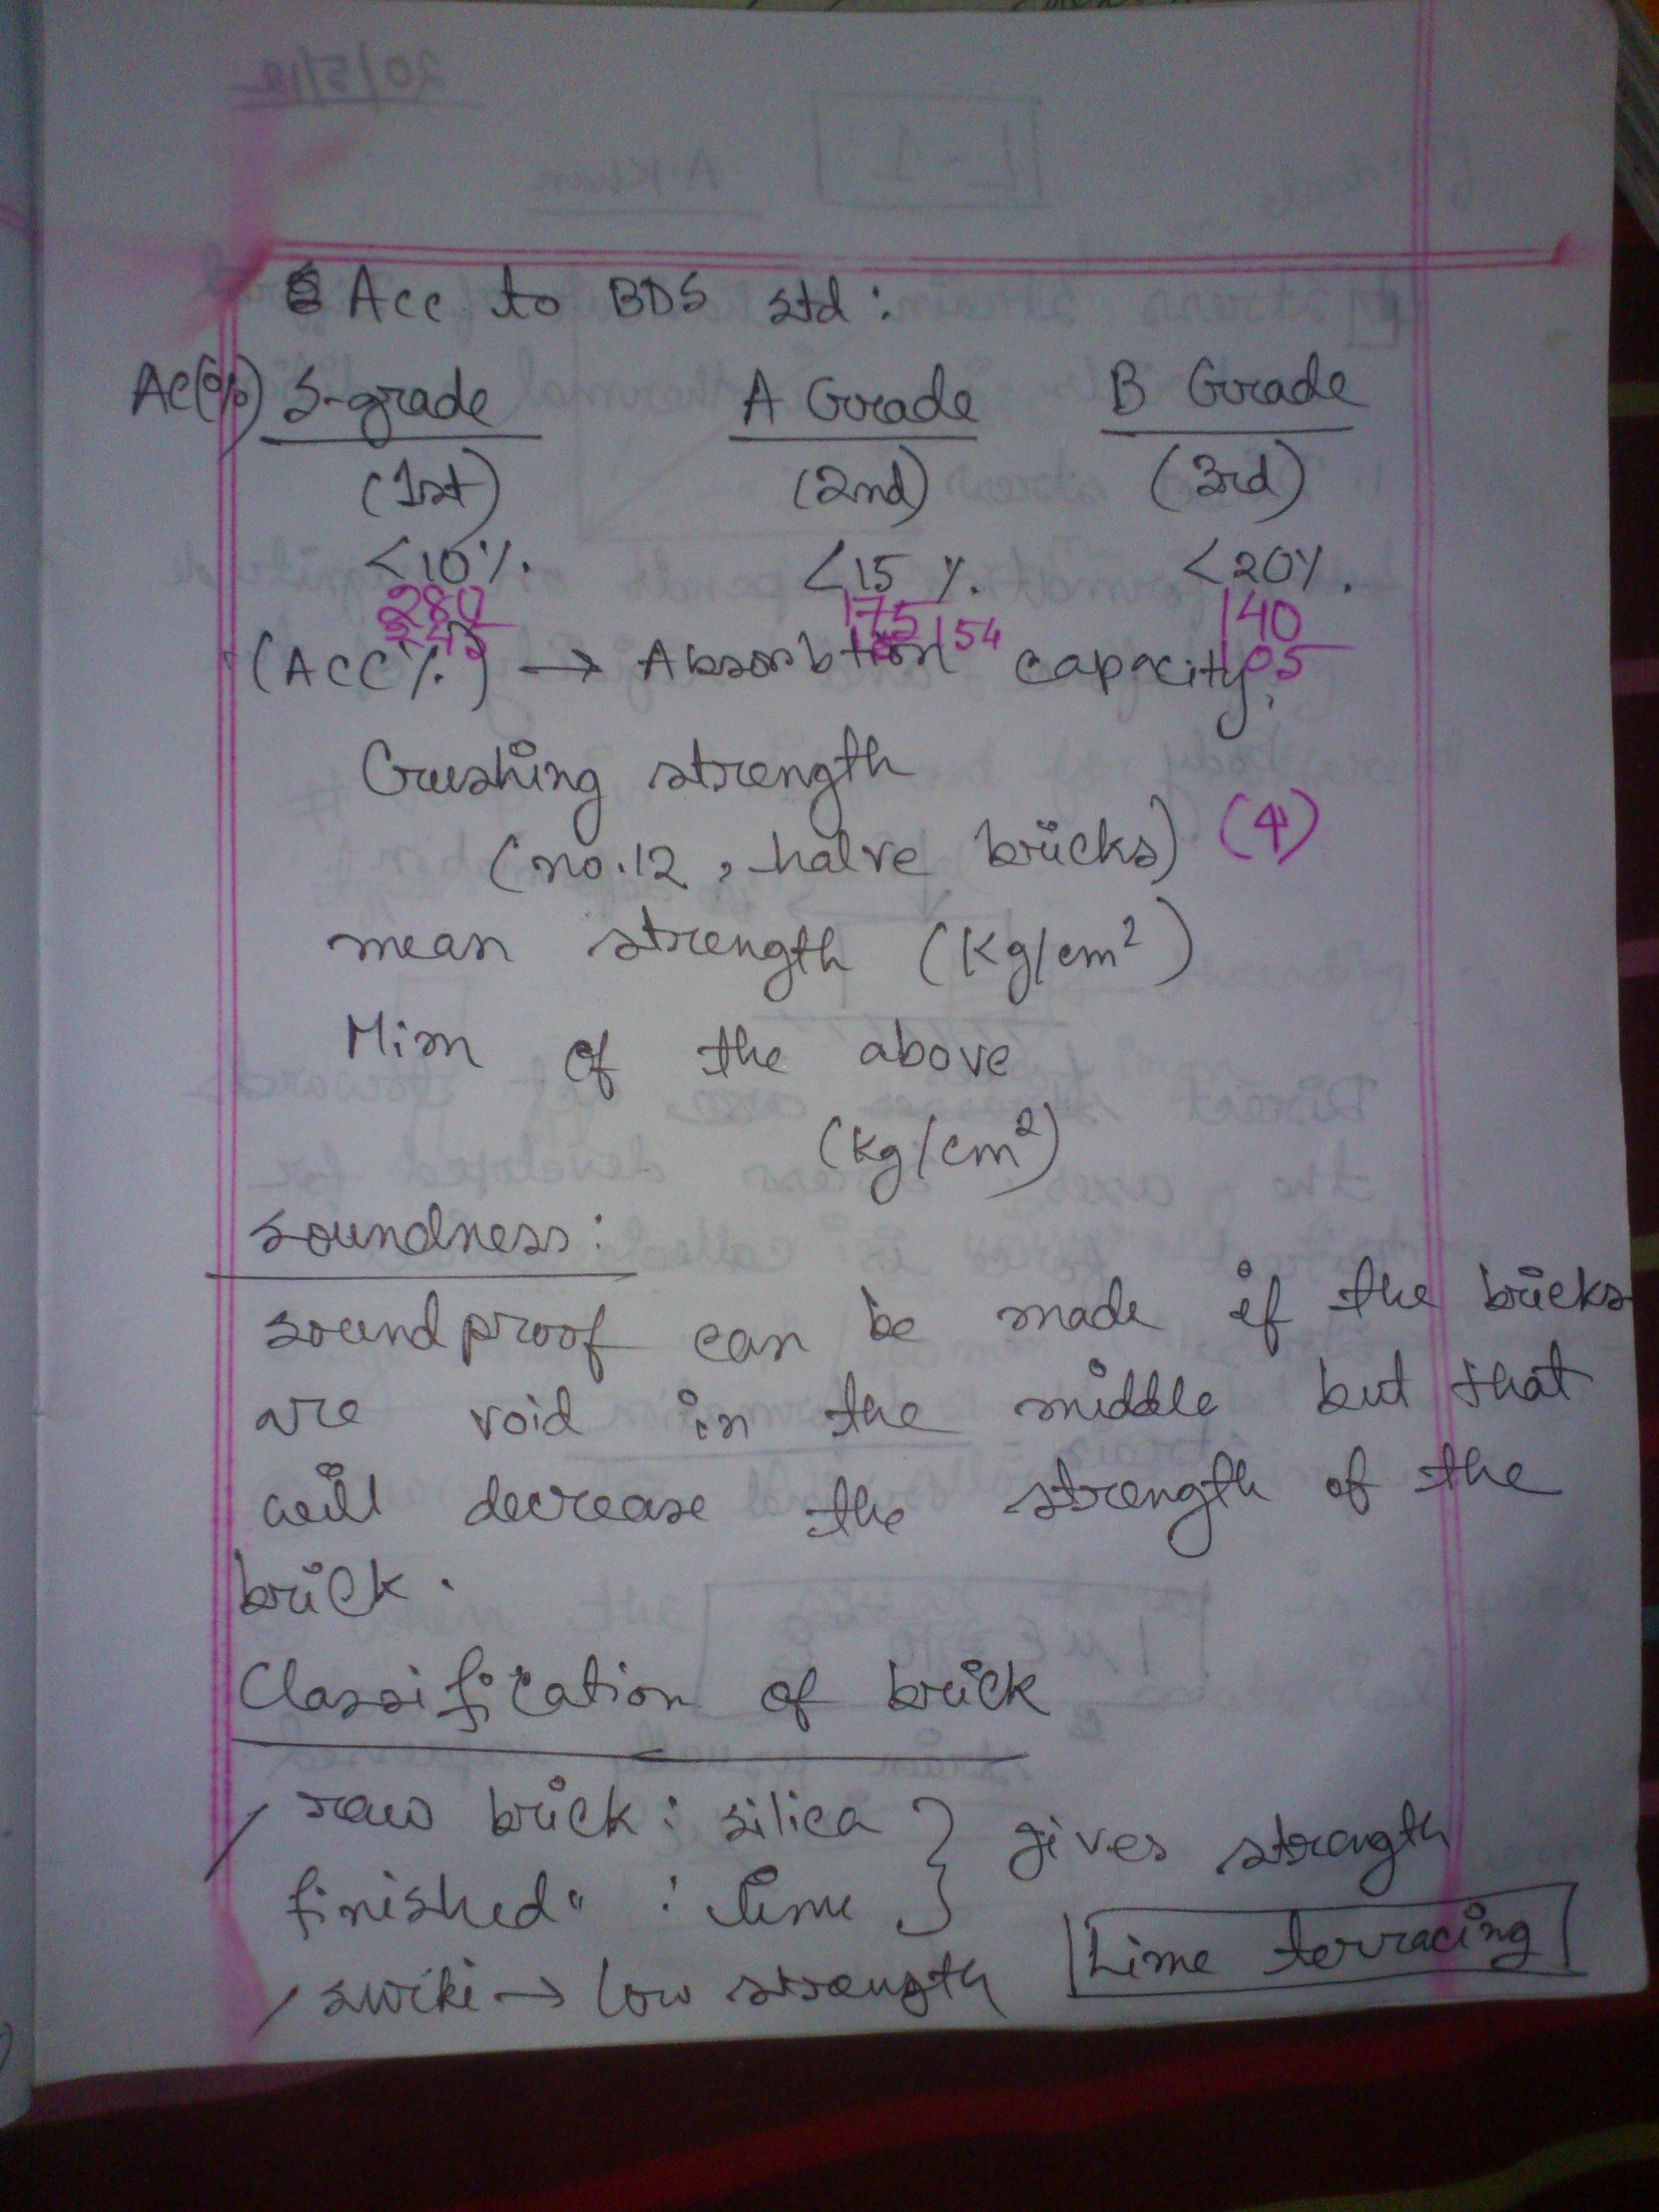 Acc to BDS std:
AC(%) S-grade A Grade B Grade
(1st) (2nd) (3rd)
<10%. <15%. <20%.
280 175 140
245 154 105
(ACC%) → Absorbtion capacity.
Crushing strength
(no.12, halve bricks) (4)
mean strength (Kg/cm²)
Mim of the above
(kg/cm²)
soundness:
soundproof can be made if the bricks
are void in the middle but that
will decrease the strength of the
brick.
Classification of brick
/ raw brick: silica } gives strength
finished " : lime
/ swiki → low strength Lime terracing